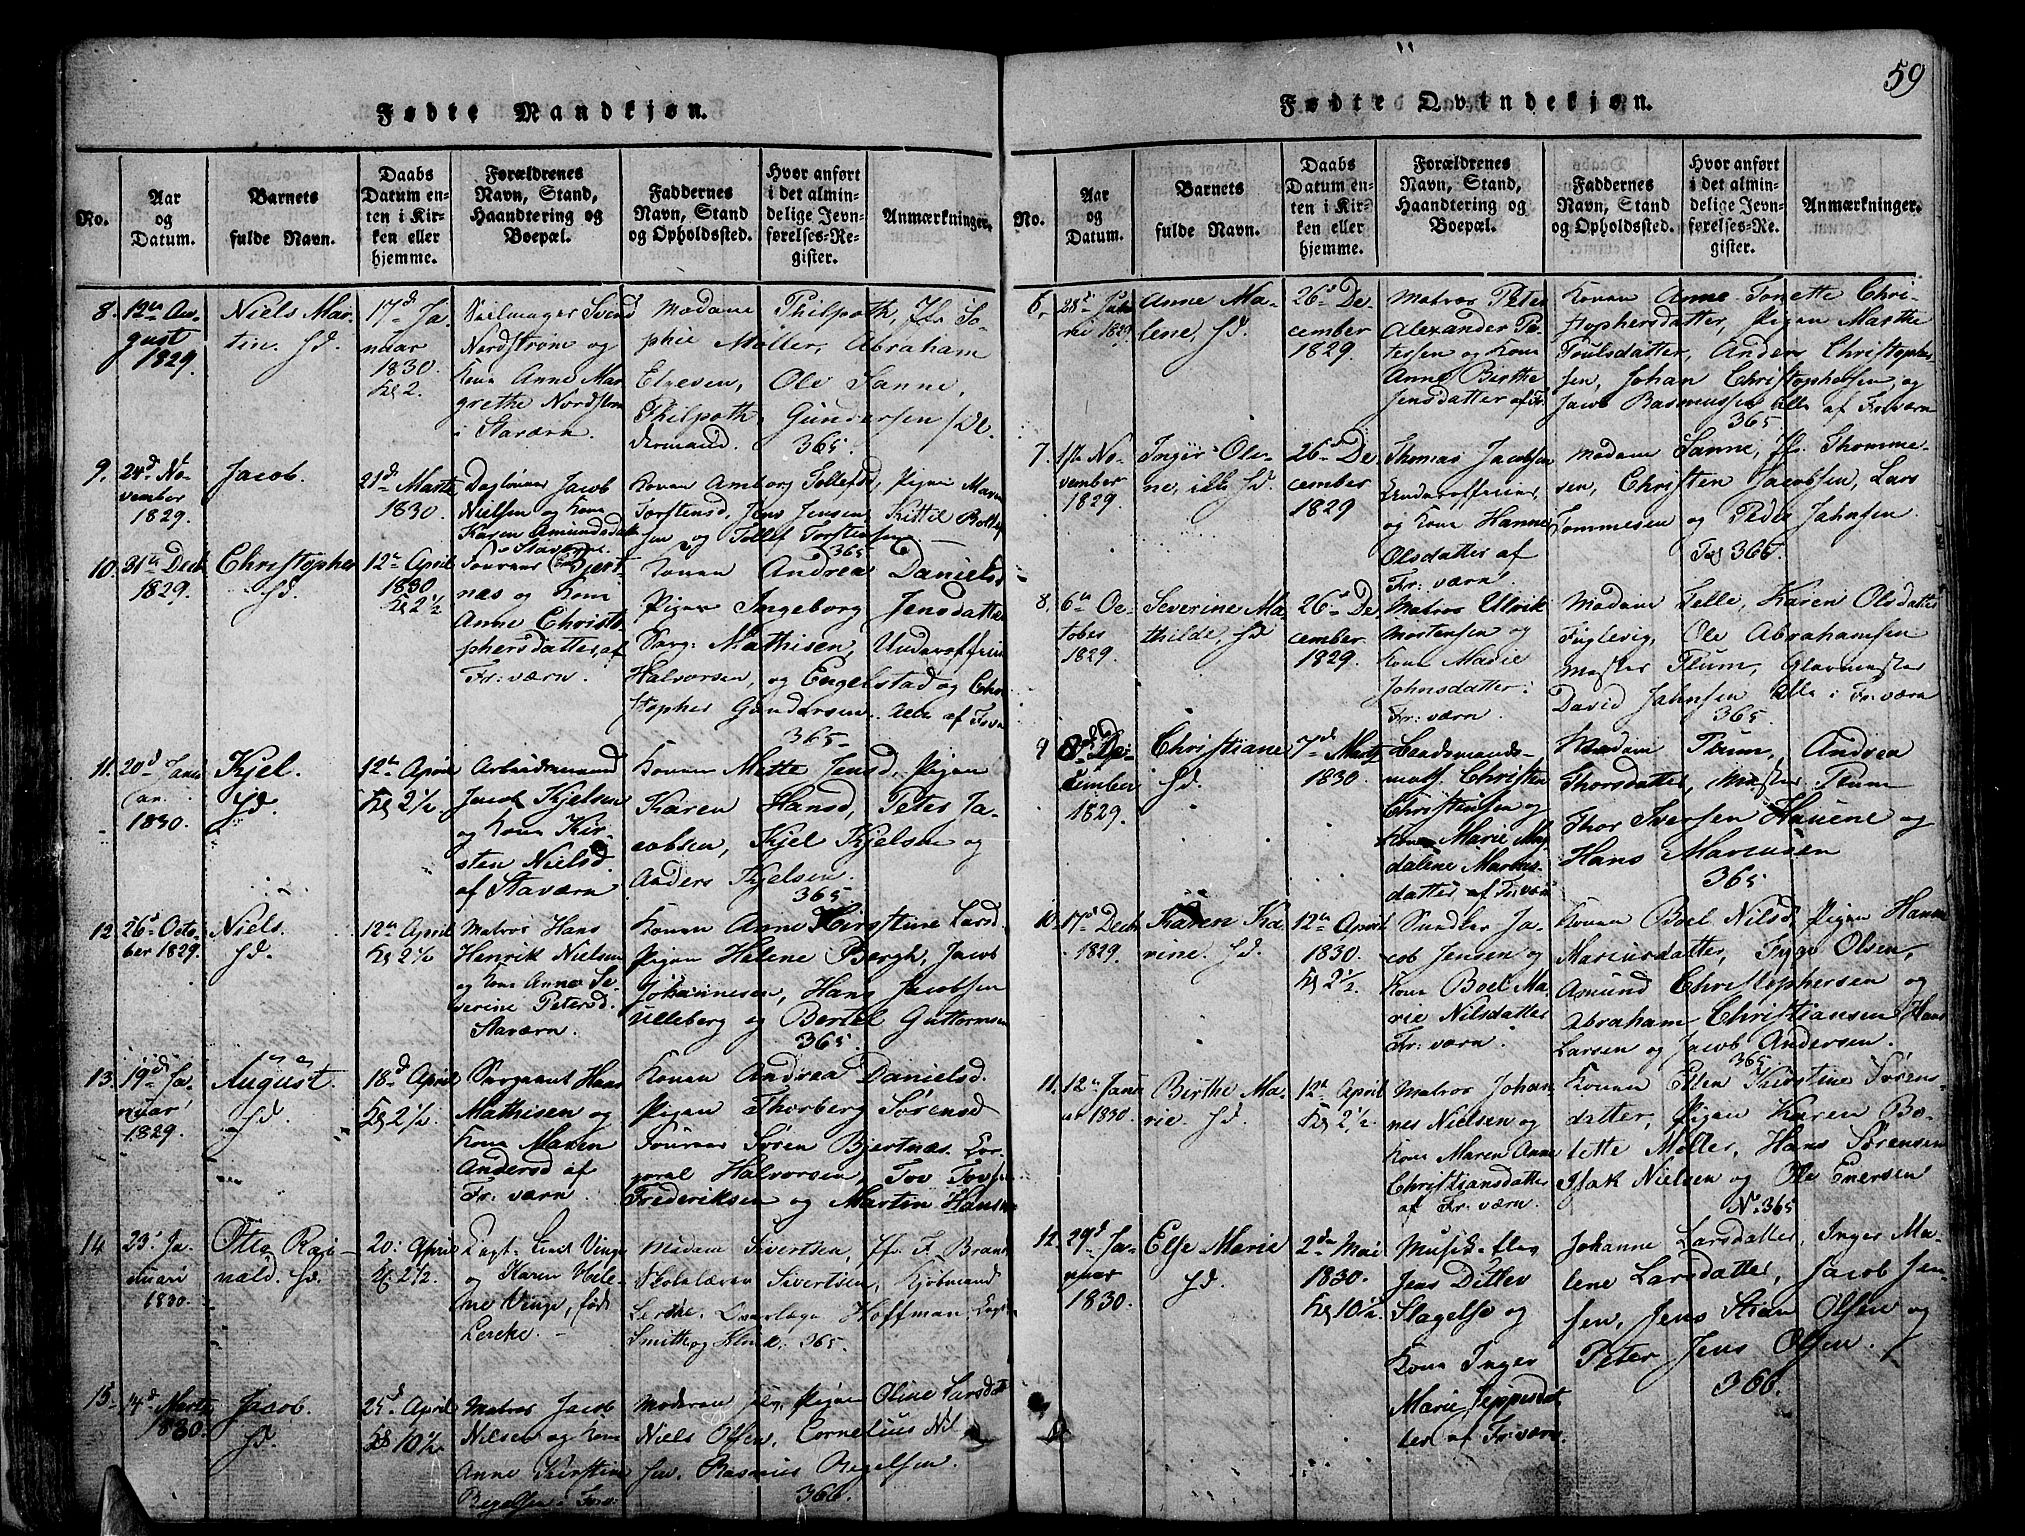 59
Fødte Mandkjøn.
No.
Aar
og
Datum.
Barnets
fulde Navn.
Daabs
Datum en-
ten i Kir-
ken eller
hjemme.
Forældrenes
Navn, Stand,
Haandtering og
Boepæl.
Faddernes
Navn, Stand
og Opholdssted.
Hvor anført
i det almin-
delige Jevn-
førelses-Re-
gister.
Anmærkninger.
8.
12te Au-
gust
1829.
Niels Mar-
tin. hd.
17d Ja-
nuar
1830
Kl 2.
Svend
Nordstrøm og
Kone Anne Mar-
grethe Nordstrøm
i Staværn.
Madame Philpoth, Jfr. So-
phie Møller, Abraham
Ole Sanne,
Philpoth, Gundersen
365
9.
24d No-
vember
1829.
Jacob.
21d Marts
1830.
Daglønner Jacob
Nielsen og Kone
Karen Amundsdatt
Staværn
Konen Amborg Tollefsd, Pigen Maren
Torstensd, Jens Jensen, Kittil
sen og Tollef Torstensen
365
10.
31te Decb
1829.
Christopher
hd.
12te April
1830
Kl 2 1/2
Fourer Bjert-
næs og Kone
Anne Christo-
phersdatter, af
Fr: værn.
Konen Andrea Danielsd
Pigen Ingeborg Jensdatter
Sarg: Mathisen, Underofficier
Halvorsen, og Engelstad og Chri-
stopher Gundersen. Alle af Frvn
365
11.
20d Janu
ar.
1830.
Kjel.
hd.
12te April
Kl 2 1/2
Arbeidsmand
Jacob Kjelsen
og Kone Kir-
sten Nielsd
af Staværn
Konen Mette Jensd, Pigen
Karen Hansd, Peter Ja-
cobsen, Kjel Kjelsen og
Anders Kjelsen.
365
12.
26d Octo-
ber 1829.
Niels.
hd.
12te April
Kl 2 1/2
Matros Hans
Henrik Nielsen
og Kone Anne Se-
verine Petersd.
Staværn.
Konen Anne Kirstine Larsd.
Pigen Helene Bergh, Jacob
Johannesen, Hans Jacobsen
Ulleberg og Bertel Guttormsen
365.
13.
19d Ja-
nuar
1829.
August.
hd.
18d April
Kl 2 1/2.
Sargeant Hans
Mathisen og
Kone Maren
Andersd af
Fr: værn.
Konen Andrea Danielsd.
Pigen Thorberg Sørensd
Fourer Søren Bjertnæs. Cor-
poral Halvorsen, Tov Tovsen
Frederiksen og Martin Hansen
14
23. Ja-
nuari
1830.
Otto Regi-
nald. hd.
20: April
Kl 2 1/2.
Capt: Vinge
og Karen Hele-
ne Vinge, født
Lerche.
Madam Sivertsen, Jfr. F.
Skolelærer Sivertsen, Kjøbmand
Lerche. Hoffman,
Smith og 365
15.
4d Marts
1830.
Jacob.
hd.
25d April
Kl 10 1/2.
Matros Jacob
Nilsen og Kone
Anne Kirstine
Moderen selv, Pigen Oline Larsdatt
Niels Olsen, Cornelius Nil
sen. Rasmus Regelsen.
366.
Fødte Qvindekjøn.
No.
Aar
og
Datum.
Barnets
fulde Navn.
Daabs
Datum en-
ten i Kir-
ken eller
hjemme.
Forældrenes
Navn, Stand,
Haandtering og
Boepæl.
Faddernes
Navn, Stand
og Opholdssted.
Hvor anført
i det almin-
delige Jevn-
førelses-Re-
gister.
Anmærkninger.
6.
28d
1829.
Anne Ma-
lene, hd.
26d De-
cember
1829.
Matros Peter
Alexander Pe-
tersen og Kone
Anne Birthe
Jensdatter af Fr.
Konen Anne Tonette Chri-
stophersdatter, Pigen Marthe
Poulsdatter, Anders Christopher-
sen, Johan Christophersen, og
Jacob Rasmussen alle af Fr:værn
365
7.
No-
vember
1829.
Inger Ole-
ne, hd.
26d De-
cember
1829
Thomas Jacobsen
Underofficier,
og Kone Hanne
Olsdatter af
Fr: værn.
Madam Sanne, Jfr. Thomme-
sen, Christen Jacobsen, Lars
Tommesen og Peder Jahnsen.
365.
8.
6te Oc-
tober
1829.
Severine Ma-
thilde, hd.
26d De-
cember
1829.
Matros Ulrik
Mortensen og
Kone Madie
Johnsdatter.
Fr: værn.
Madam Telle, Karen Olsdatter
Fuglevig, Ole Abrahamsen
Mester Thum, Glarmester
David Jahnsen Alle i Fr:værn
365.
9
8de De-
cember
1829.
Christiane
hd.
7d Marts
1830.
Christen
Christensen og
Kone Marie Mag
dalene Markus-
datter af Fr:værn
Madam Thum, Andrea
Thorsdatter, Mester Thum
Thor Iversen Hauene og
Hans Marcusen
365
10.
17d Decbr
1829.
Karen Ka-
rine. hd.
12te April
1830.
Kl 2 1/2
Jacob Jensen og
Kone Boel Ma-
rie Nilsdatter
Fr: værn.
Konen Boel Nilsd Pigen Hanne
Marcusdatter, Tyge Olsen,
Amund Christophersen og
Abraham Christiansen, Hans
Larsen og Jacob Andersen.
365
11.
12te Janu
ar 1830.
Birthe Ma-
rie. hd.
12te April
Kl 2 1/2.
Matros Johan-
nes Nielsen og
Kone Maren Anne
Christiansdatter
af Fr: værn.
Konen Ellen Kirstine Sørens-
datter, Pigen Karen Bo-
lette Møller, Hans Sørensen
Isak Nielsen og Ole Enersen
No 365
12.
29d Ja-
nuar
1830.
Else Marie
hd.
2den Mai
1830.
Kl 10 1/2.
Jens Ditlev
Slagelse og
Kone Inger
Marie Jeppesdat
ter af Fr:værn.
Johanne Larsdatter, Inger Ma-
lene Larsdatter, Jacob Jan-
sen, Jens Olsen og
Peter Jens Olsen.
366.